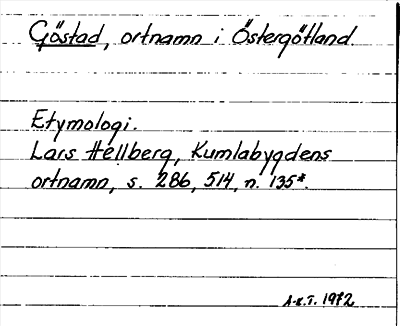 Göstad, ortnamn i Östergötland.
Etymologi.
Lars Hellberg, Kumlabygdens
ortnamn, s. 286, 514, n. 135*.
A-z.T. 1972